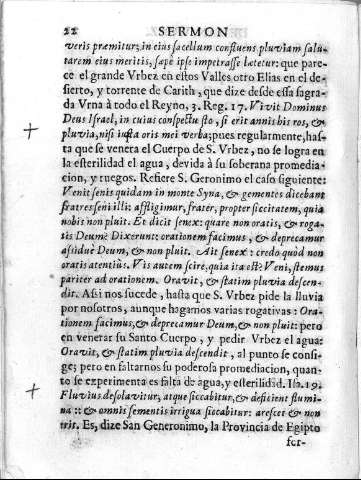 22 SERMON
veris præmitur; in eius sacellum confluens pluviam salu-
tarem eius meritis, sæpe ipse impetrasse lætetur: que pare-
ce el grande Vrbez en estos Valles otro Elias en el de-
sierto, y torrente de Carith, que dize desde essa sagra-
da Vrna à todo el Reyno, 3. Reg. 17. Vivit Dominus
Deus Israel, in cuius conspectu sto, si erit annis his ros, &
pluvia, nisi iuxta oris mei verba; pues regularmente, has-
ta que se venera el Cuerpo de S. Vrbez, no se logra en
la esterilidad el agua, devida à su soberana promedia-
cion, y ruegos. Refiere S. Geronimo el caso siguiente:
Venit senis quidam in monte Syna, & gementes dicebant
fratres seni illi: affligimur, frater, propter siccitatem, quia
nobis non pluit. Et dicit senex: quare non oratis, & roga-
tis Deum? Dixerunt: orationem facimus, & deprecamur
assiduè Deum, & non pluit. Ait senex: credo quòd non
oratis atentiùs. Vis autem scire, quia ita est? Veni, stemus
pariter ad orationem. Oravit, & statim pluvia descen-
dit. Assi nos sucede, hasta que S. Vrbez pide la lluvia
por nosotros, aunque hagamos varias rogativas: Ora-
tionem facimus, & deprecamur Deum, & non pluit: pero
en venerar su Santo Cuerpo, y pedir Vrbez el agua:
Oravit, & statim pluvia descendit, al punto se consi-
ge; pero en faltarnos su poderosa promediacion, quan-
to se experimenta es falta de agua, y esterilidad. Isa. 19.
Fluvius desolavitur, atque siccabitur, & deficient flumi-
na :: & omnis sementis irrigua siccabitur: arescet & non
erit. Es, dize San Generonimo, la Provincia de Egipto
fer-